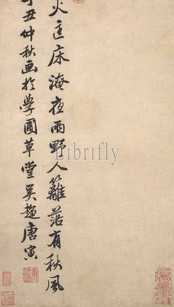 火匡床淹夜雨野人籬落有秋風
丑仲秋画於學圃草堂吳趨唐寅
Librifly